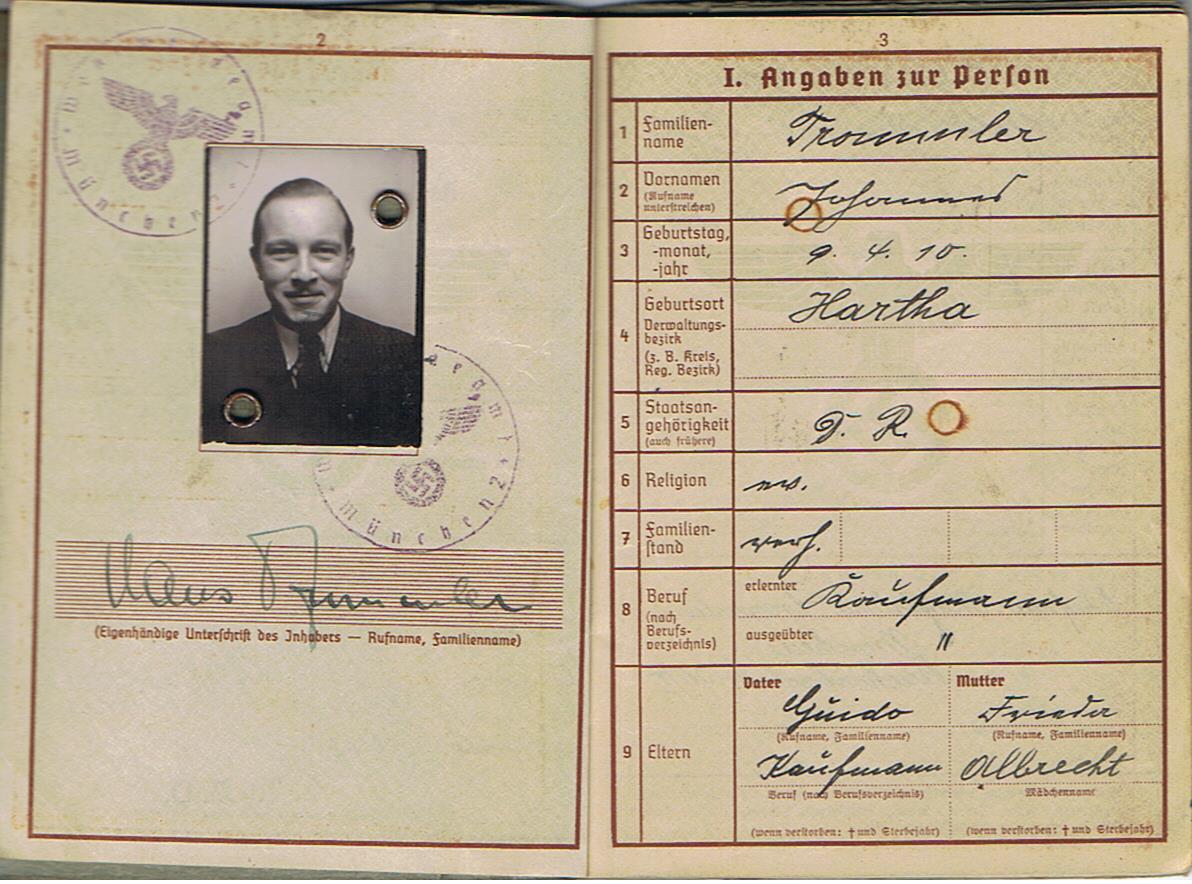 2
München 2
München 2
Hans Trommler
(Eigenhändige Unterschrift des Inhabers — Rufname, Familienname)
3
I. Angaben zur Person
1 Familien-
name
Trommler
2 Vornamen
(Rufname
unterstreichen)
Johannes
3 Geburtstag,
-monat,
-jahr
9. 4. 10.
4 Geburtsort
Verwaltungs-
bezirk
(z. B. Kreis,
Reg. Bezirk)
Hartha
5 Staatsan-
gehörigkeit
(auch frühere)
D. R.
6 Religion
ev.
7 Familien-
stand
verh.
8 Beruf
(nach
Berufs-
verzeichnis)
erlernter Kaufmann
ausgeübter "
9 Eltern
Vater Mutter
Guido Frieda
(Rufname, Familienname) (Rufname, Familienname)
Kaufmann Albrecht
Beruf (nach Berufsverzeichnis) Mädchenname
(wenn verstorben: † und Sterbejahr) (wenn verstorben: † und Sterbejahr)